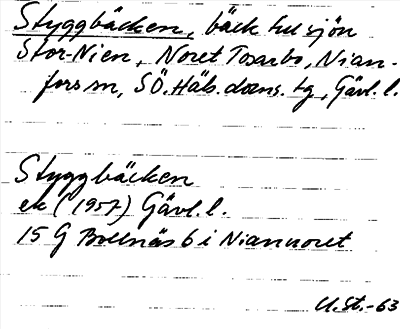 Styggbäcken, bäck till sjön
Stor-Nien, Noret Tosarbo, Nian-
fors sn, SÖ. Häls. doms. tg, Gävl. l.
Styggbäcken
ek (1957) Gävl. l.
15 G Bollnäs 6 i Niannoret
U.St.-63